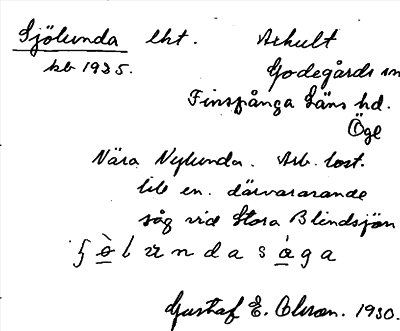 Sjölunda lht. Arkult
kb 1925. Godegårds sn
Finspånga Läns hd.
Ögl
Nära Nylunda. Arb. bost.
till en. därvararande
såg vid Stora Blindsjön
Gustaf E. Olsson. 1930.